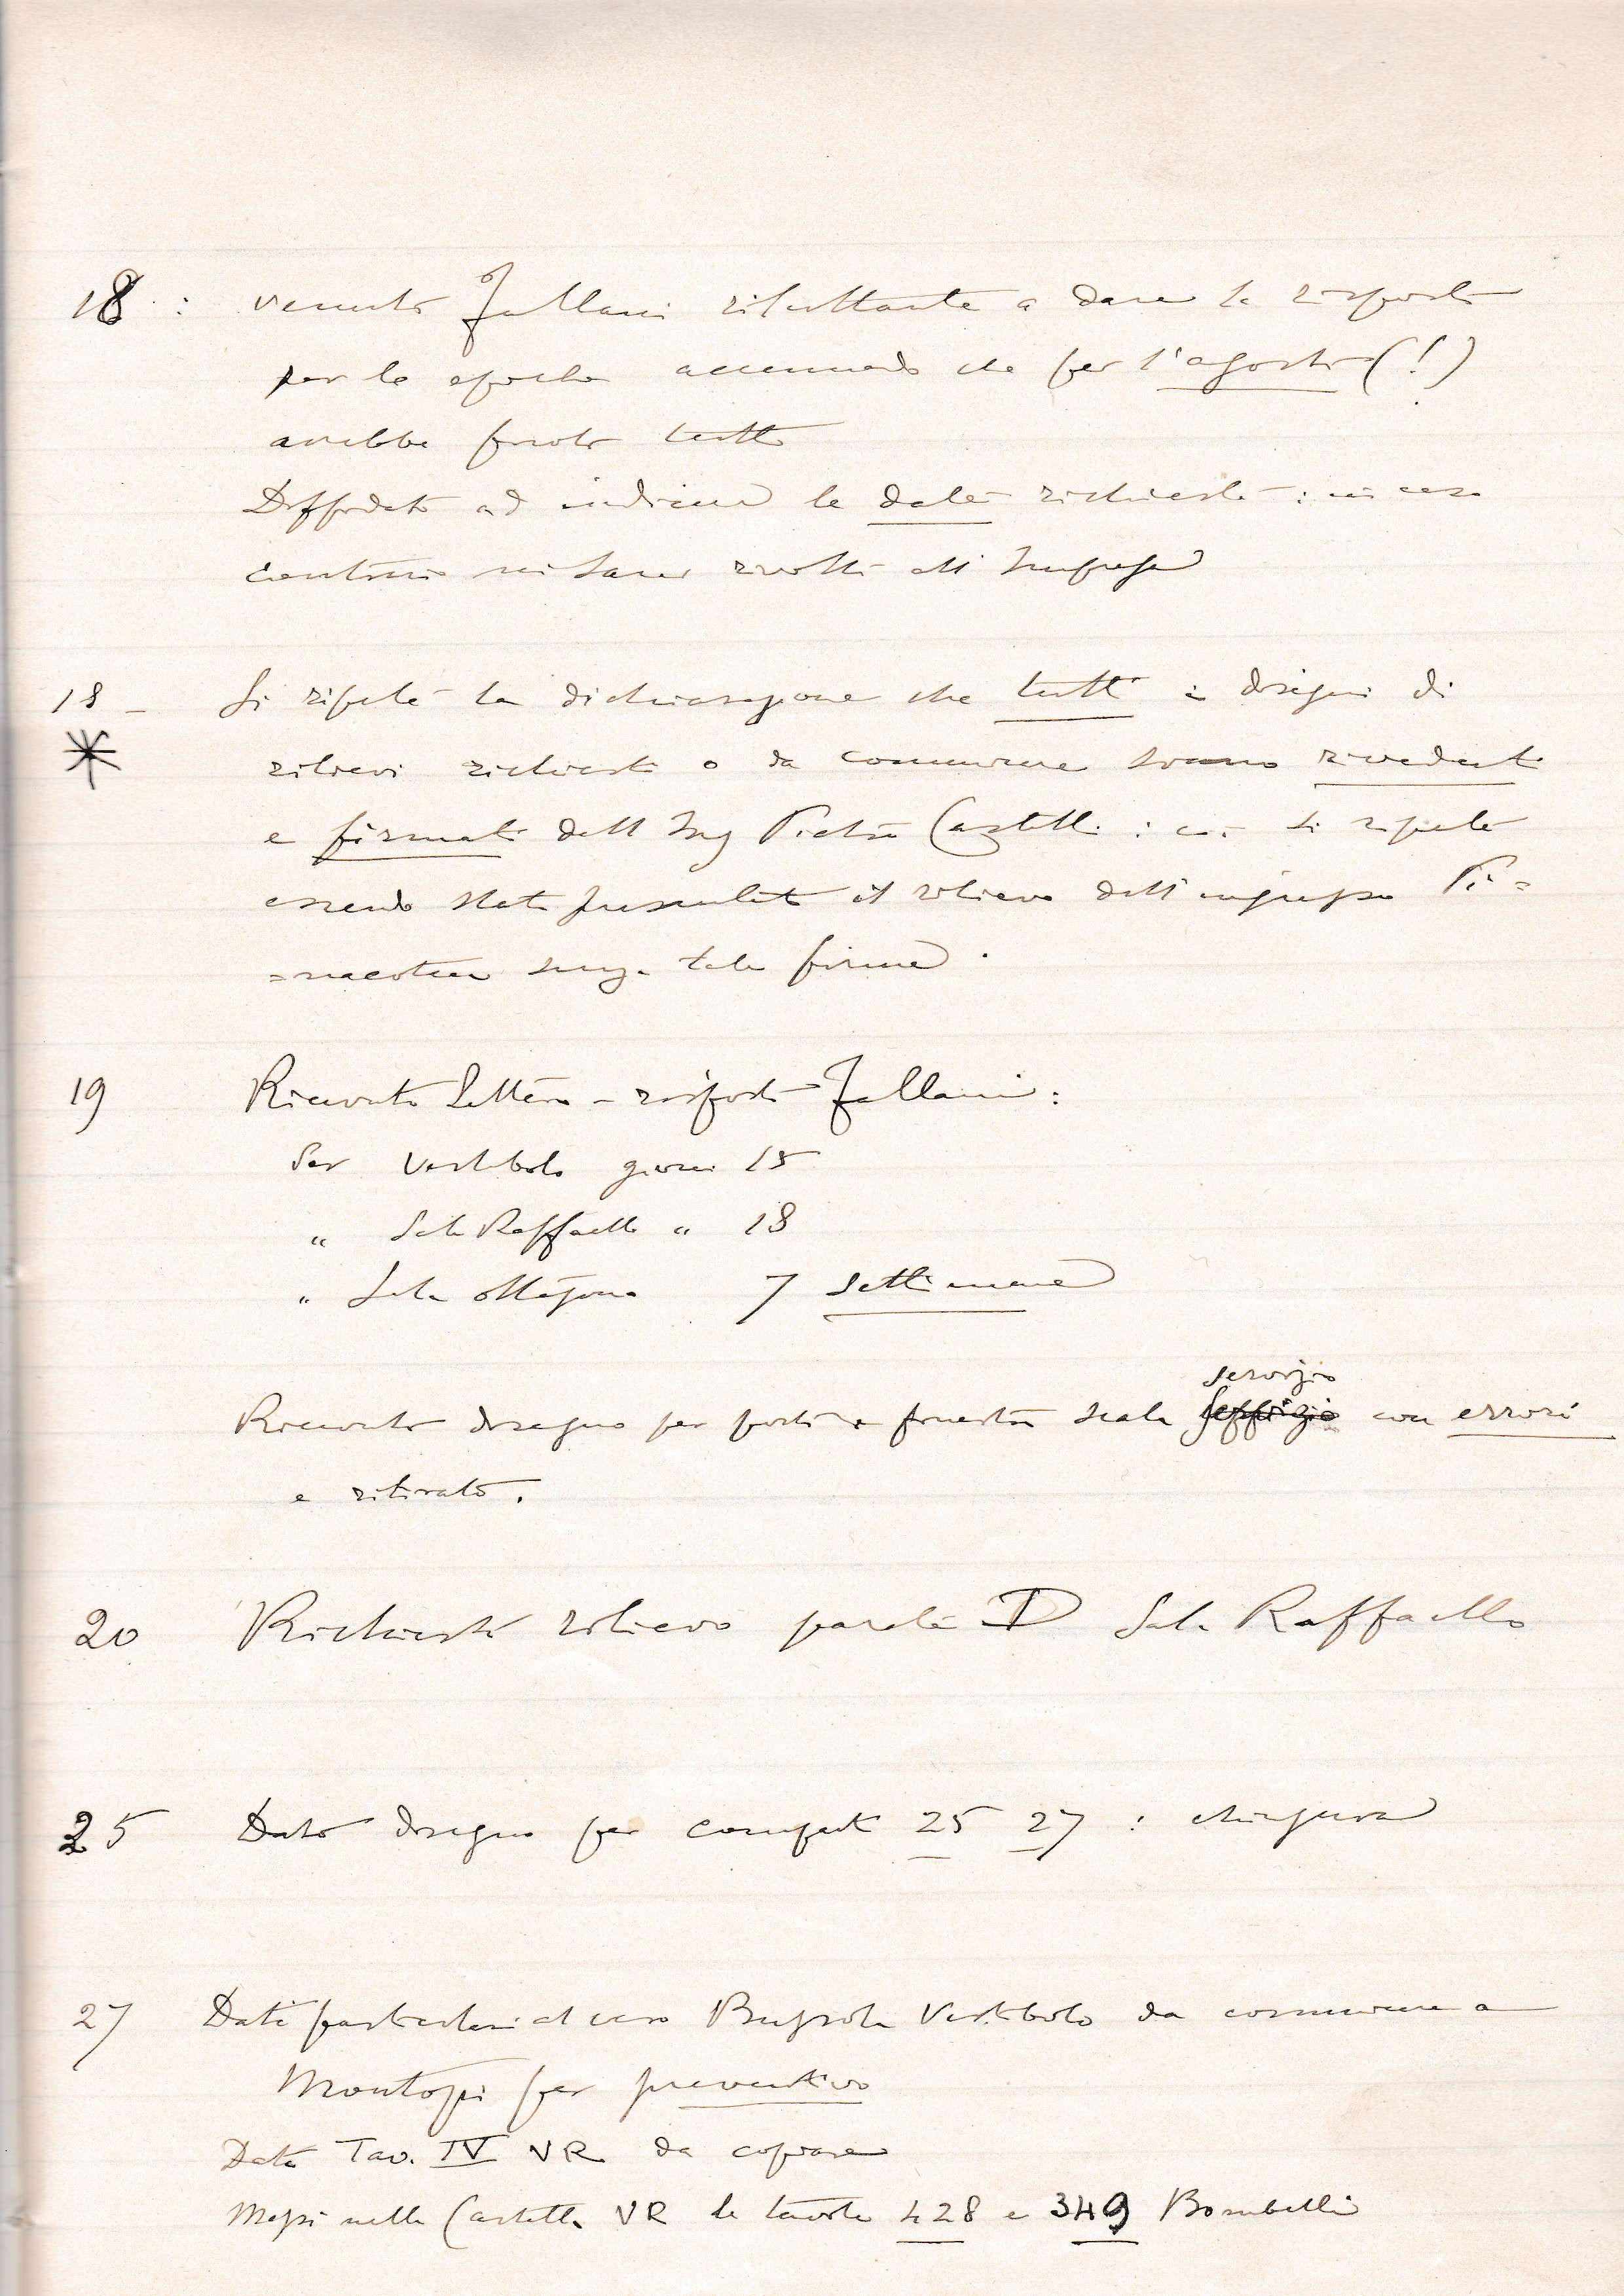 18 : venuto Fallani riluttante a dare la risposta
per le epoche accennando che per l'agosto (!)
avrebbe finito tutto
Diffidato ad indicare le date richieste : in caso
contrario mi sarei rivolto all'Impresa
18 - Si ripete la dichiarazione che tutti i disegni di
rilievi richiesti o da comunicare siano riveduti
e firmati dall'Ing Pietro Castelli : ciò si ripete
essendo stato presentato il rilievo dell'ingresso Pi=
=nacoteca senza tale firma .
19 Ricevuto Lettera - risposta Fallani :
Per Vestibolo giorni 15
" Sala Raffaello " 18
" Sala ottagona 7 settimane
servizio
Ricevuto disegno per porta e finestra scala con errori
e ritirato .
20 Richiesto rilievo parete D Sala Raffaello
25 Dato disegno per comparti 25 27 : chiusura
27 Dati particolari al vero Bussola Vestibolo da comunicare a
Montosi per preventivo
Dato Tav. IV VR da copiare
Messi nella Cartella VR le tavole 428 e 349 Bombelli